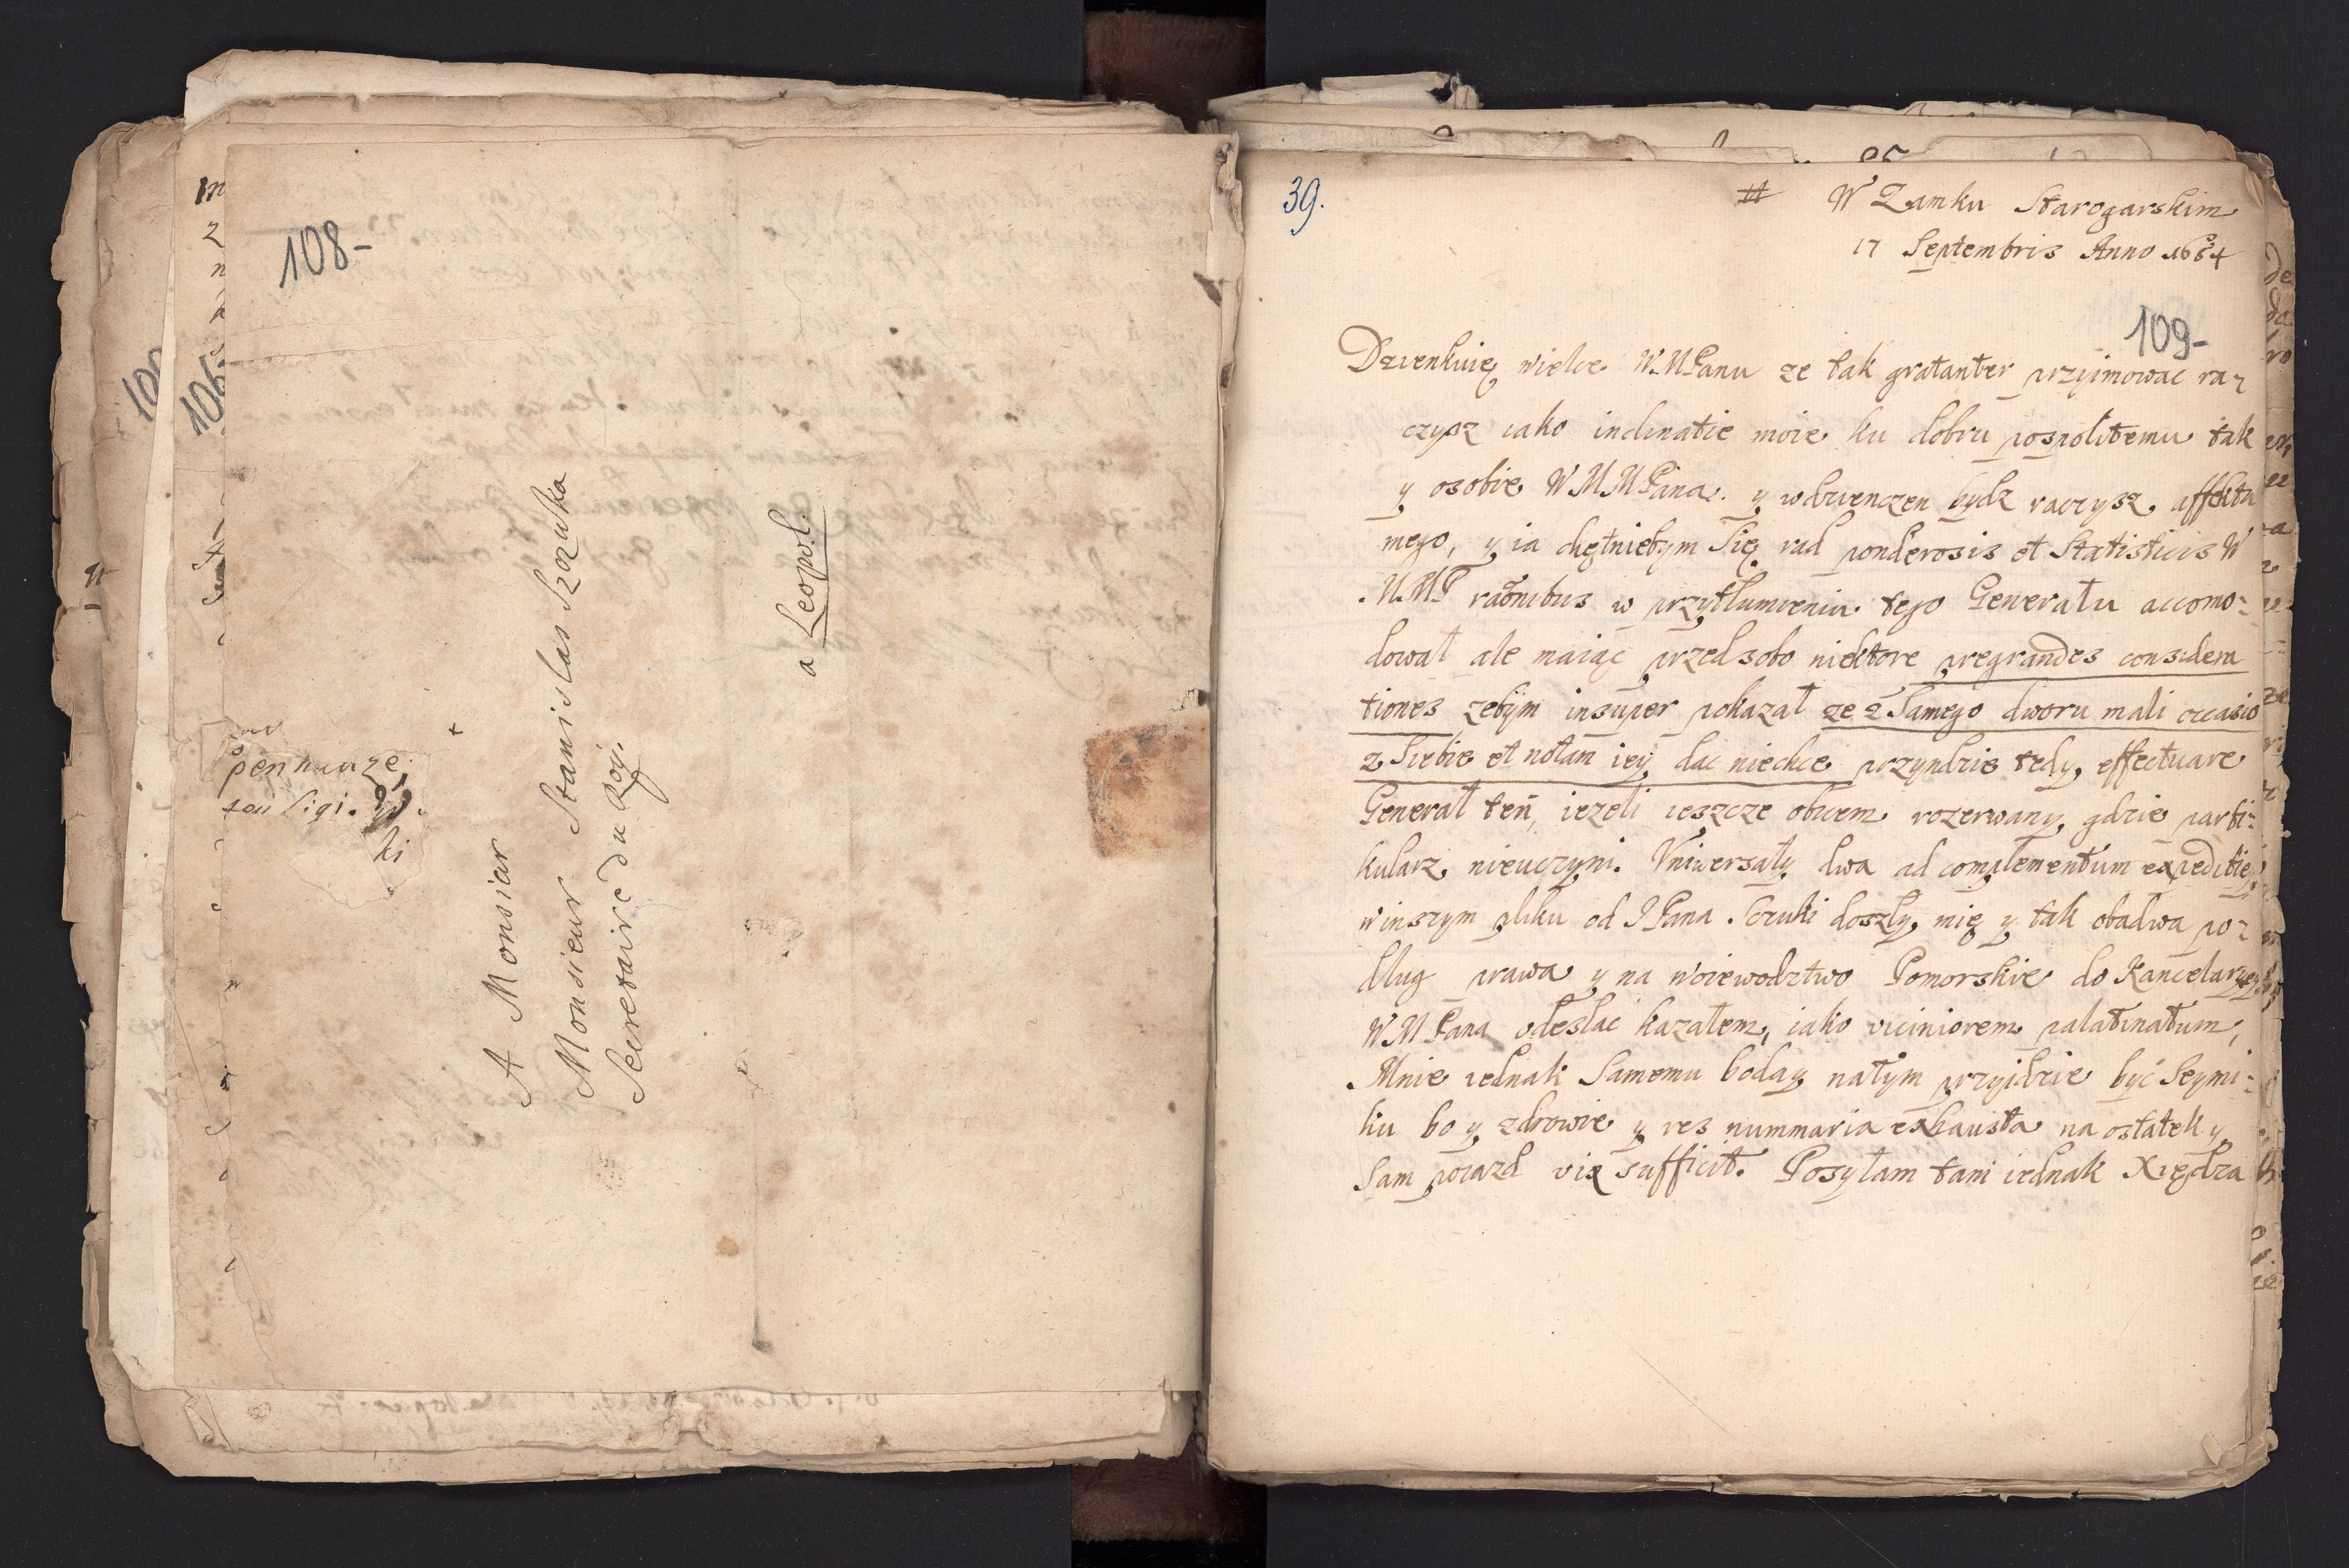 108-
A Monsieur
Monsieur Stanislas Szczuka
Secretaire du Roy.
a Leopol.
ki
106
39.
W Zamku Starogarskim
17 Septembris Anno 1684
109-
Dzienkuię wielce W.M.Panu ze tak gratanter przyimowac ra-
czysz iako inclinatie moie ku dobru pospolitemu tak
y osobie W M M Pana. y wdzienczen bydz raczysz affektu
mego, y ia chętniebym Się rad ponderosis et Statisticis W
M.M.P raonibus w przytlumieniu tego Generału accomo=
dował ale maiąc przed sobo niektore pregrandes considera
tiones zebym insuper pokazał ze z Samego dworu mali occasio
z Siebie et notam iey dac niechce przyndzie tedy effectuare
Generał ten, iezeli ieszcze obiem rozerwany gdzie parti=
kularz nieuczyni. Vniwersały dwa ad complementum expeditiey
winszym pliku od J Pana Sczuki doszły mię y tak obadwa po-
dług prawa y na woiewodztwo Pomorskie do Kancelaryey
W M Pana odesłac kazałem, iako viciniorem palatinatum,
Mnie iednak Samemu boday natym przyidzie być Seymi=
ku bo y zdrowie y res nummaria exhausta na ostatek y
Sam poiazd vix sufficit. Posyłam tam iednak Xiędza